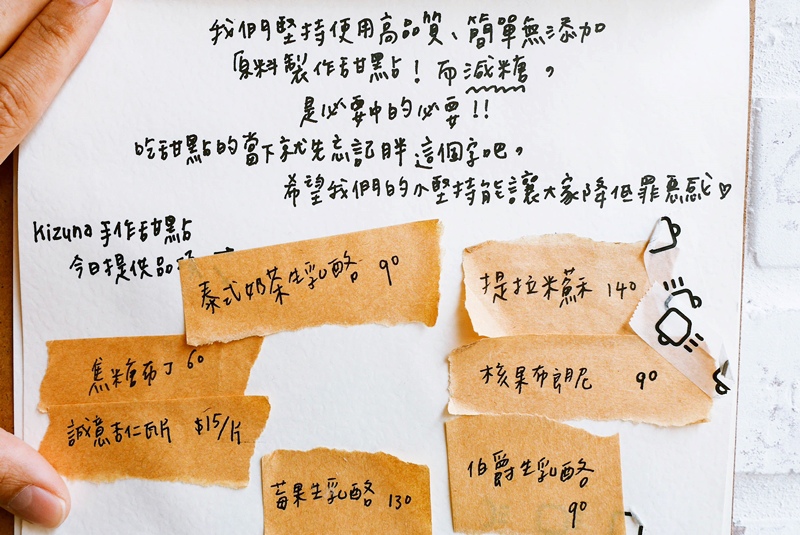 我們堅持使用高品質、簡單無添加
原料製作甜點！而減糖，
是必要中的必要!!
吃甜點的當下就先忘記胖這個字吧，
希望我們的小堅持能讓大家降低罪惡感♡
Kizuna 手作甜點
今日提供品項
泰式奶茶生乳酪 90
提拉米蘇 140
焦糖布丁 60
核果布朗尼 90
誠意杏仁瓦片 $15/片
伯爵生乳酪
90
莓果生乳酪 130